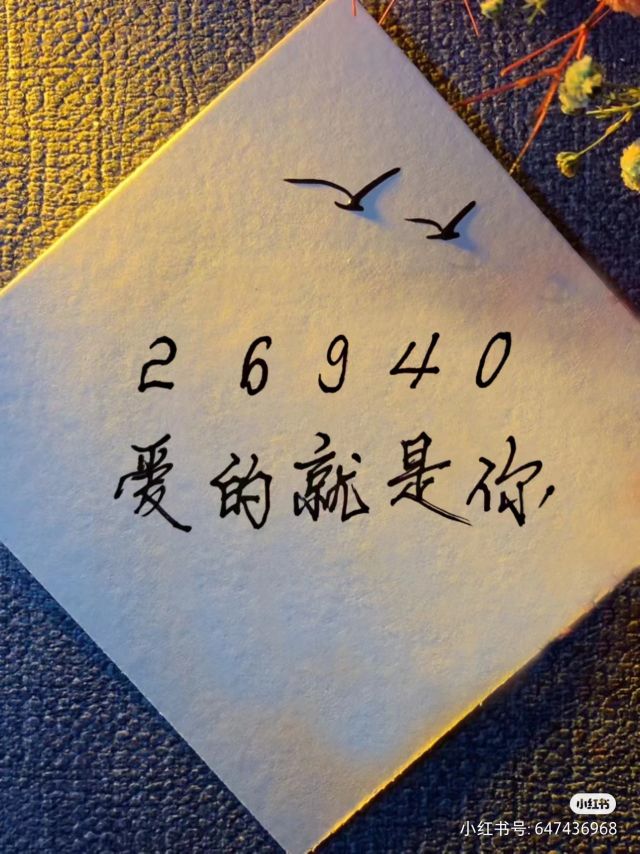 2 6 9 4 0
爱的就是你,
小红书
小红书号: 647436968